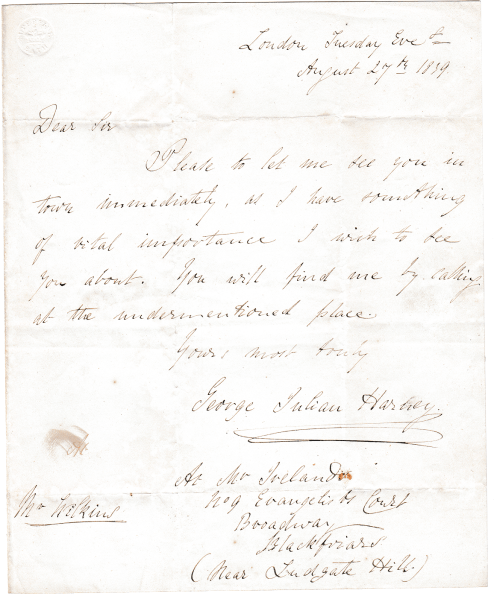 London Tuesday Eve.g
August 27th 1839.
Dear Sir
Please to let me see you in
town immediately, as I have something
of vital importance I wish to see
you about. You will find me by calling
at the undermentioned place.
Yours most truly
George Julian Harney.
At Mr Ireland's
No 9 Evangelists Court
Broadway
Blackfriars
(Near Ludgate Hill.)
Mr Watkins